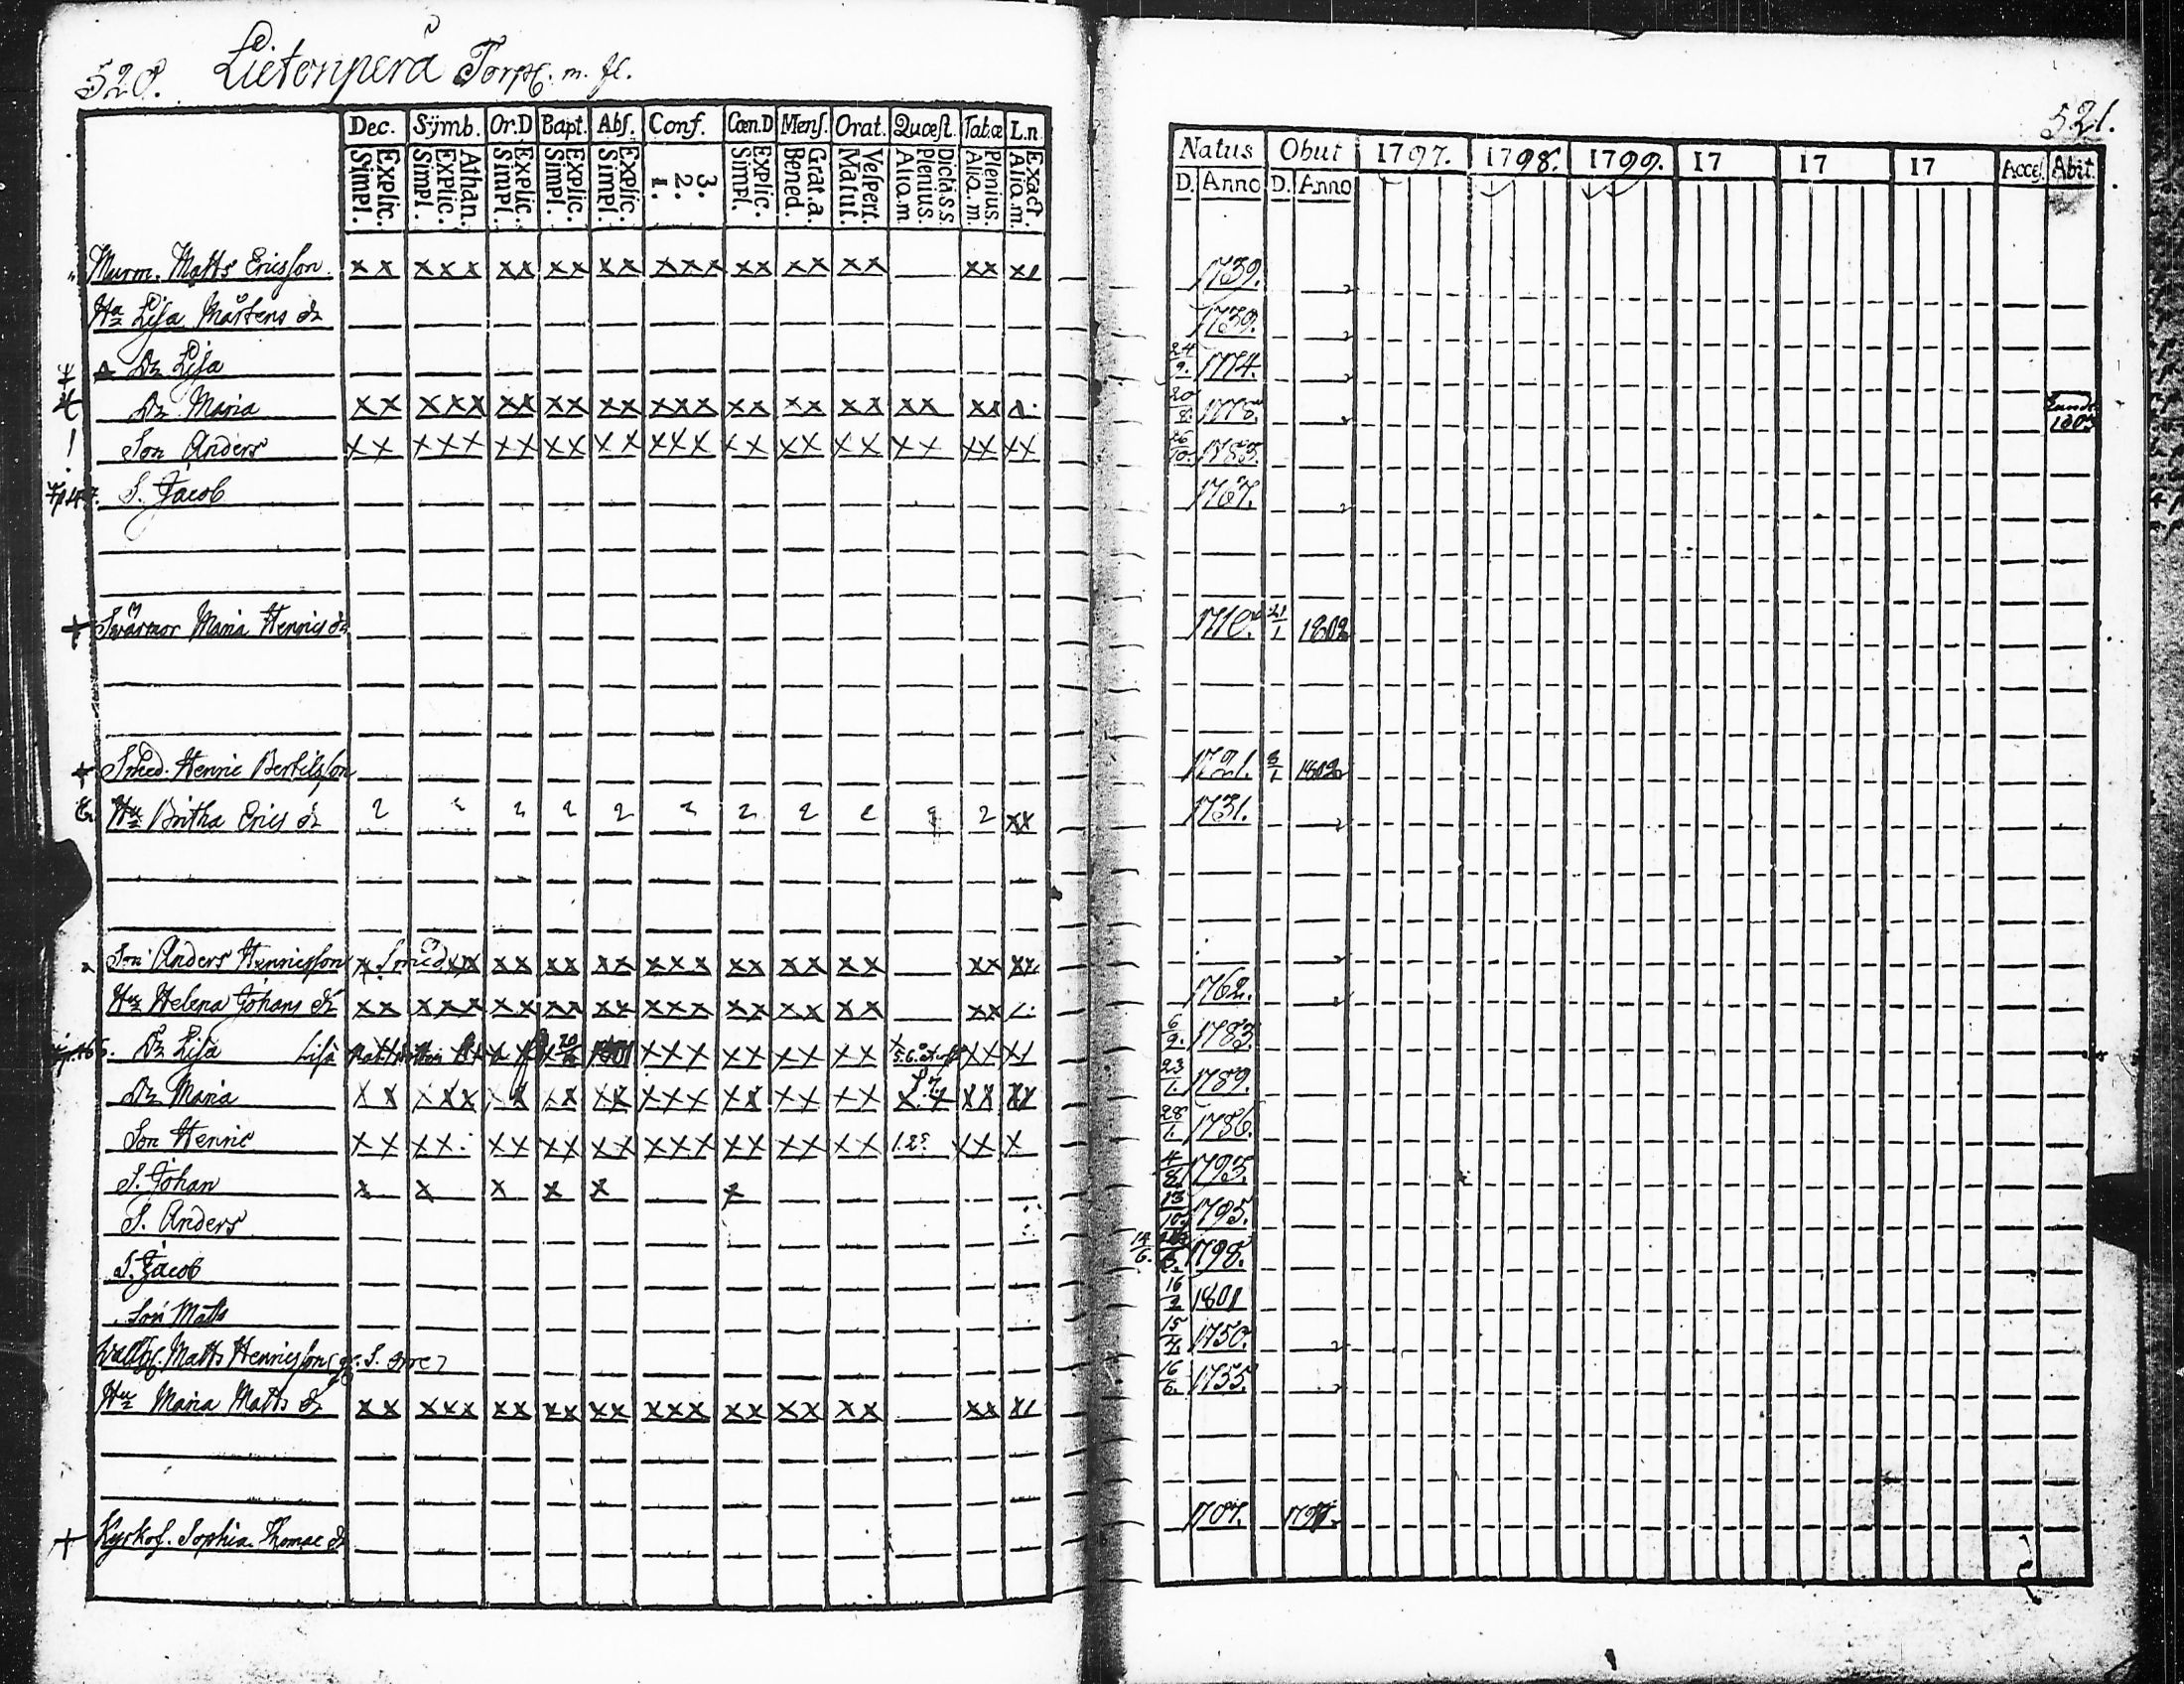 520. Lietonperä Torp. m. fl.
Dec. Sÿmb. Or.D Bapt. Abs. Conf. Cœn.D Mens. Orat. Quæst. Tabæ L.n
Explic. Simpl. Athan. Explic. Simpl. Explic. Simpl. Explic. Simpl. Explic. Simpl. 3. 2. 1. Explic. Simpl. Grat.a. Bened. Vespert. Matut. Dictà s.s. Plenius. Aliq.m. Plenius. Aliq.m. Exact. Aliq.m.
Murm. Matts Ericsson x x x x x x x x x x x x x x x x x x x x x x x
Hu Lisa Mårtens dr
Dr Lisa
Dr Maria x x x x x x x x x x x x x x x x x x x x x x x x
Son Anders x x x x x x x x x x x x x x x x x x x x x x x x x x
S. Jacob
+ Svärmor Maria Henrics dr
+ Smed. Henric Bertilsson
Hu Britha Erics dr 2 2 2 2 2 2 2 2 2 2 xx
Son Anders Henricsson x Smed xx xx xx xx xxx xx xx xx xx
Hu Helena Johans dr xx xxx xx xx xx xxx xx xx xx xx
Dr Lisa Lisa xxx xx xx xx
Dr Maria x x x x x x x x x x x x x x x x x x x x
Son Henric x x x x x x x x x x x x x x x x x x x x x x x
S. Johan x x x x x x
S. Anders
S. Jacob
Son Matts
Matts Henricsson
Hu Maria Matts dr xx xxx xx xx xx xxx xx xx xx xx
+ Kyrkof. Sophia Thomæ dr
521.
Natus Obiit 1797. 1798. 1799. 17 17 17 Acces. Abit.
D. Anno D. Anno
1739.
1739.
24/9. 1774.
20/8. 1778.
1783.
1767.
1710. 21/1 1802
1721. 3/1 1802
1731.
1762.
6/9. 1783.
23/1. 1789.
28/1. 1786.
4/8. 1793.
13/10. 1795.
14/6. 1798.
16/2 1801
15/4. 1750.
16/6. 1755.
1707. 1797.